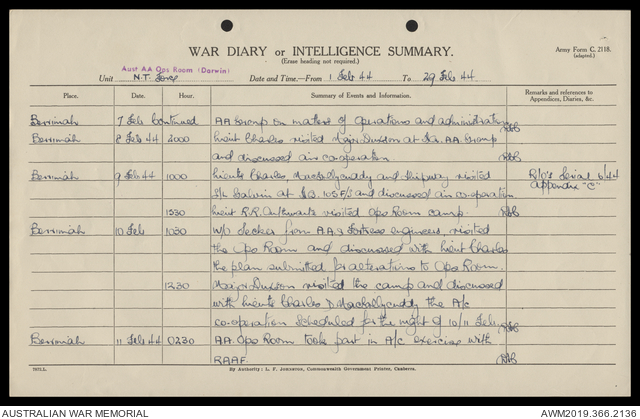 WAR DIARY or INTELLIGENCE SUMMARY.
(Erase heading not required.)
Army Form C. 2118.
(adapted)
Aust AA Ops Room (Darwin)
Unit N.T. Force Date and Time.—From 1 Feb 44 To 29 Feb 44
Place. Date. Hour. Summary of Events and Information. Remarks and references to Appendices, Diaries, &c.
Berrimah 7 Feb Continued AA Group on matters of operations and administration
Berrimah 8 Feb 44 2000 Lieut Charles visited Major Dickson at AA Group
and discussed air co-operation
Berrimah 9 Feb 44 1000 Lieuts Charles, and visited R/O's Serial 6/44
S/L at 105 F/S and discussed air co-operation appendix "C"
1530 Lieut R.R. visited Ops Room camp.
Berrimah 10 Feb 1030 W/O Decker from AA & Fortress engineers, visited
the Ops Room and discussed with Lieut Charles
the plan submitted for alterations to Ops Room.
1230 Major visited the camp and discussed
with Lieuts Charles the A/c
co-operation scheduled for the night of 10/11 Feb.
Berrimah 11 Feb 44 0230 AA. Ops Room took part in A/c exercise with
RAAF.
By Authority: L. F. Johnston, Commonwealth Government Printer, Canberra.
AUSTRALIAN WAR MEMORIAL AWM2019.366.2136